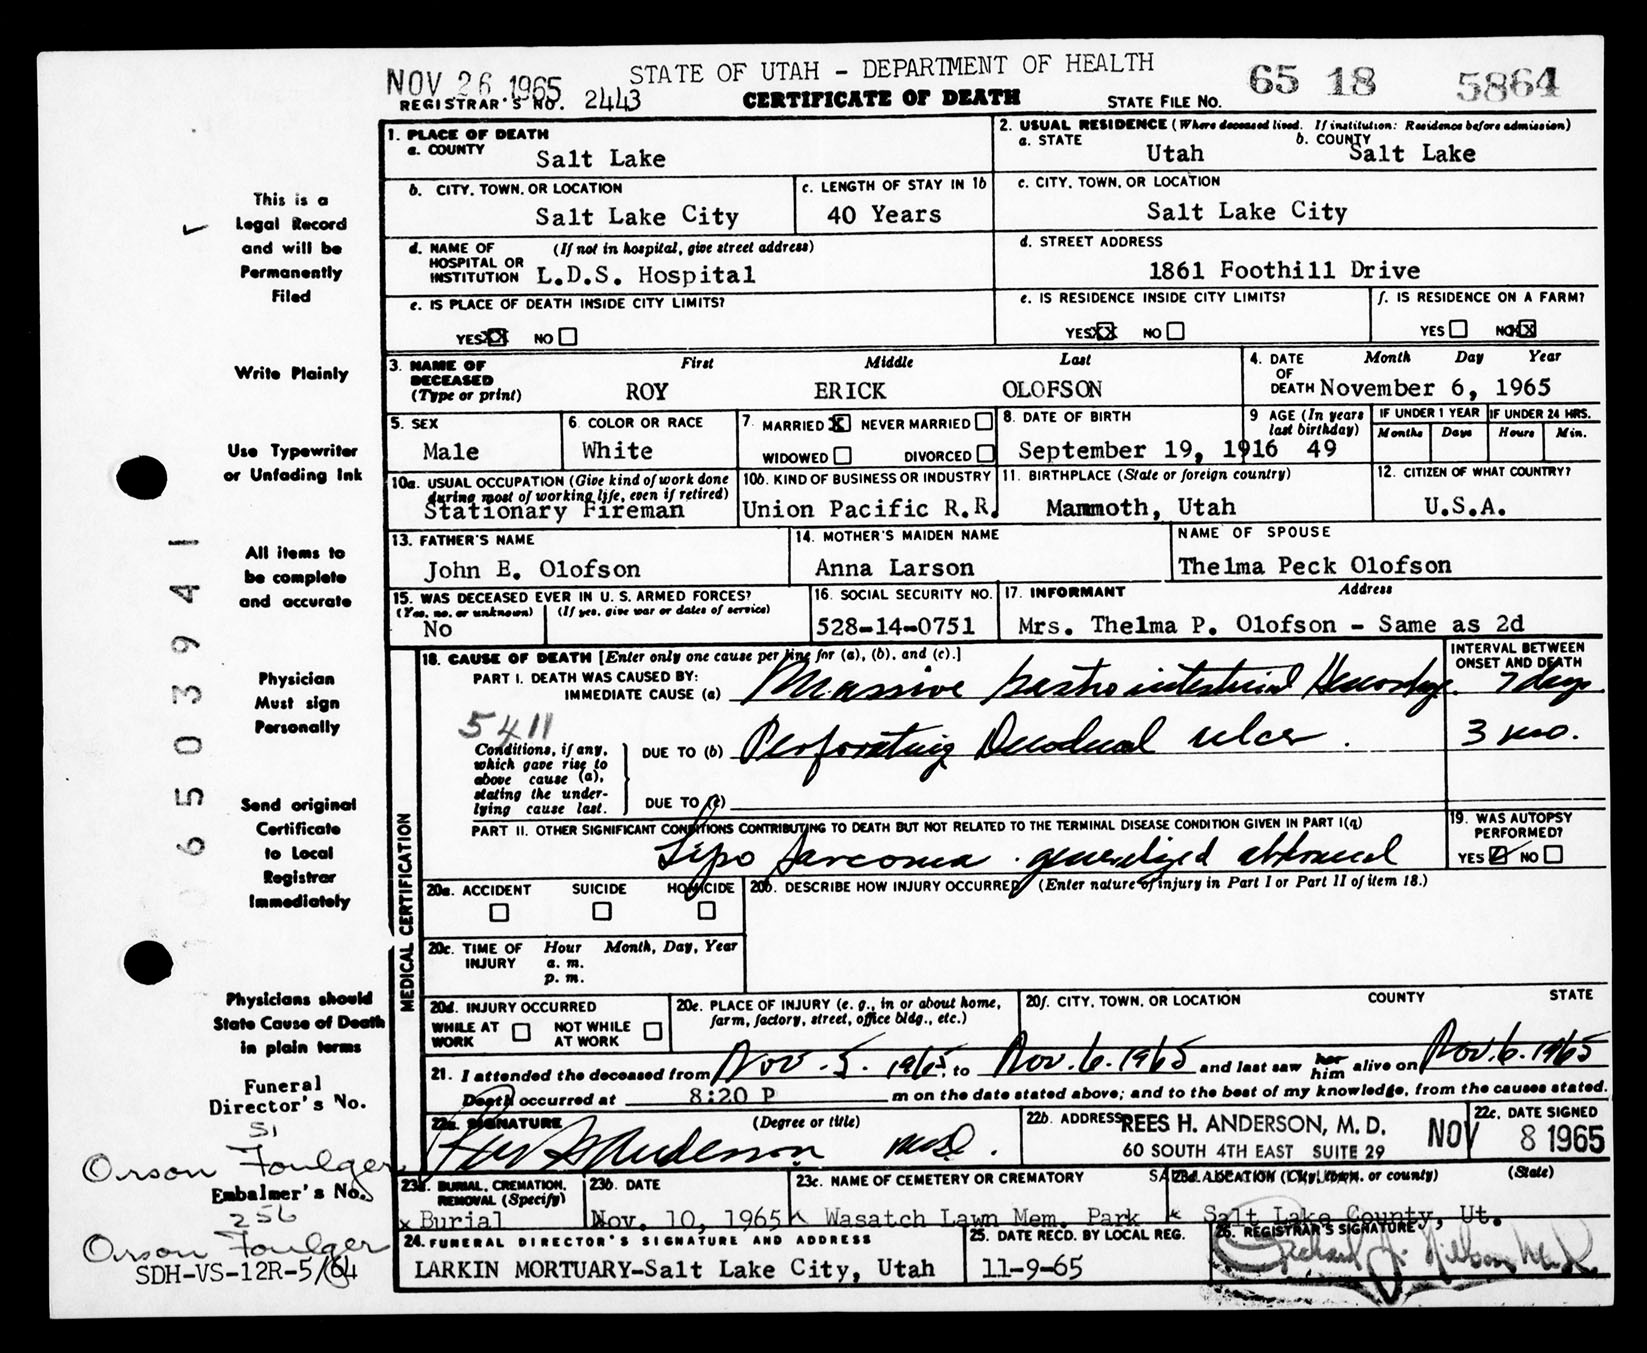 NOV 26 1965 STATE OF UTAH - DEPARTMENT OF HEALTH 65 18 5864
REGISTRAR'S NO. 2443 CERTIFICATE OF DEATH STATE FILE NO.
1. PLACE OF DEATH
a. COUNTY Salt Lake
2. USUAL RESIDENCE (Where deceased lived. If institution: Residence before admission)
a. STATE Utah b. COUNTY Salt Lake
b. CITY, TOWN, OR LOCATION Salt Lake City
c. LENGTH OF STAY IN 1b 40 Years
c. CITY, TOWN, OR LOCATION Salt Lake City
d. NAME OF HOSPITAL OR INSTITUTION (If not in hospital, give street address) L.D.S. Hospital
d. STREET ADDRESS 1861 Foothill Drive
e. IS PLACE OF DEATH INSIDE CITY LIMITS?
YES XX NO
e. IS RESIDENCE INSIDE CITY LIMITS?
YES XX NO
f. IS RESIDENCE ON A FARM?
YES NO XX
3. NAME OF DECEASED (Type or print) First Middle Last
ROY ERICK OLOFSON
4. DATE OF DEATH Month Day Year
November 6, 1965
5. SEX Male
6. COLOR OR RACE White
7. MARRIED X NEVER MARRIED
WIDOWED DIVORCED
8. DATE OF BIRTH September 19, 1916
9 AGE (In years last birthday) 49
IF UNDER 1 YEAR Months Days
IF UNDER 24 HRS. Hours Min.
10a. USUAL OCCUPATION (Give kind of work done during most of working life, even if retired)
Stationary Fireman
10b. KIND OF BUSINESS OR INDUSTRY Union Pacific R.R.
11. BIRTHPLACE (State or foreign country) Mammoth, Utah
12. CITIZEN OF WHAT COUNTRY? U.S.A.
13. FATHER'S NAME John E. Olofson
14. MOTHER'S MAIDEN NAME Anna Larson
NAME OF SPOUSE Thelma Peck Olofson
15. WAS DECEASED EVER IN U. S. ARMED FORCES?
(Yes, no, or unknown) (If yes, give war or dates of service)
No
16. SOCIAL SECURITY NO. 528-14-0751
17. INFORMANT Address
Mrs. Thelma P. Olofson - Same as 2d
MEDICAL CERTIFICATION
18. CAUSE OF DEATH [Enter only one cause per line for (a), (b), and (c).]
INTERVAL BETWEEN ONSET AND DEATH
PART I. DEATH WAS CAUSED BY:
IMMEDIATE CAUSE (a) Massive gastrointestinal Hemorrhage. 7 days
5411
Conditions, if any, which gave rise to above cause (a), stating the underlying cause last.
DUE TO (b) Perforating Duodenal ulcer. 3 mo.
DUE TO (c)
PART II. OTHER SIGNIFICANT CONDITIONS CONTRIBUTING TO DEATH BUT NOT RELATED TO THE TERMINAL DISEASE CONDITION GIVEN IN PART I(a)
Lipo Sarcoma. generalized abdominal
19. WAS AUTOPSY PERFORMED?
YES NO
20a. ACCIDENT SUICIDE HOMICIDE
20b. DESCRIBE HOW INJURY OCCURRED (Enter nature of injury in Part I or Part II of item 18.)
20c. TIME OF INJURY Hour Month, Day, Year
a. m.
p. m.
20d. INJURY OCCURRED
WHILE AT WORK NOT WHILE AT WORK
20e. PLACE OF INJURY (e. g., in or about home, farm, factory, street, office bldg., etc.)
20f. CITY, TOWN, OR LOCATION COUNTY STATE
21. I attended the deceased from Nov. 5. 1965, to Nov. 6. 1965 and last saw her him alive on Nov. 6. 1965
Death occurred at 8:20 P m on the date stated above; and to the best of my knowledge, from the causes stated.
22a. SIGNATURE (Degree or title)
Rees H Anderson M.D.
22b. ADDRESS REES H. ANDERSON, M. D.
60 SOUTH 4TH EAST SUITE 29
22c. DATE SIGNED
NOV 8 1965
23a. BURIAL, CREMATION, REMOVAL (Specify)
x Burial
23b. DATE
Nov. 10, 1965
23c. NAME OF CEMETERY OR CREMATORY
x Wasatch Lawn Mem. Park
23d. LOCATION (City, town, or county) (State)
x Salt Lake County, Ut.
24. FUNERAL DIRECTOR'S SIGNATURE AND ADDRESS
LARKIN MORTUARY-Salt Lake City, Utah
25. DATE RECD. BY LOCAL REG.
11-9-65
26. REGISTRAR'S SIGNATURE
This is a
Legal Record
and will be
Permanently
Filed
Write Plainly
Use Typewriter
or Unfading Ink
All items to
be complete
and accurate
Physician
Must sign
Personally
Send original
Certificate
to Local
Registrar
Immediately
Physicians should
State Cause of Death
in plain terms
Funeral
Director's No.
51
Orson Foulger
Embalmer's No.
256
Orson Foulger
SDH-VS-12R-5/64
06503941